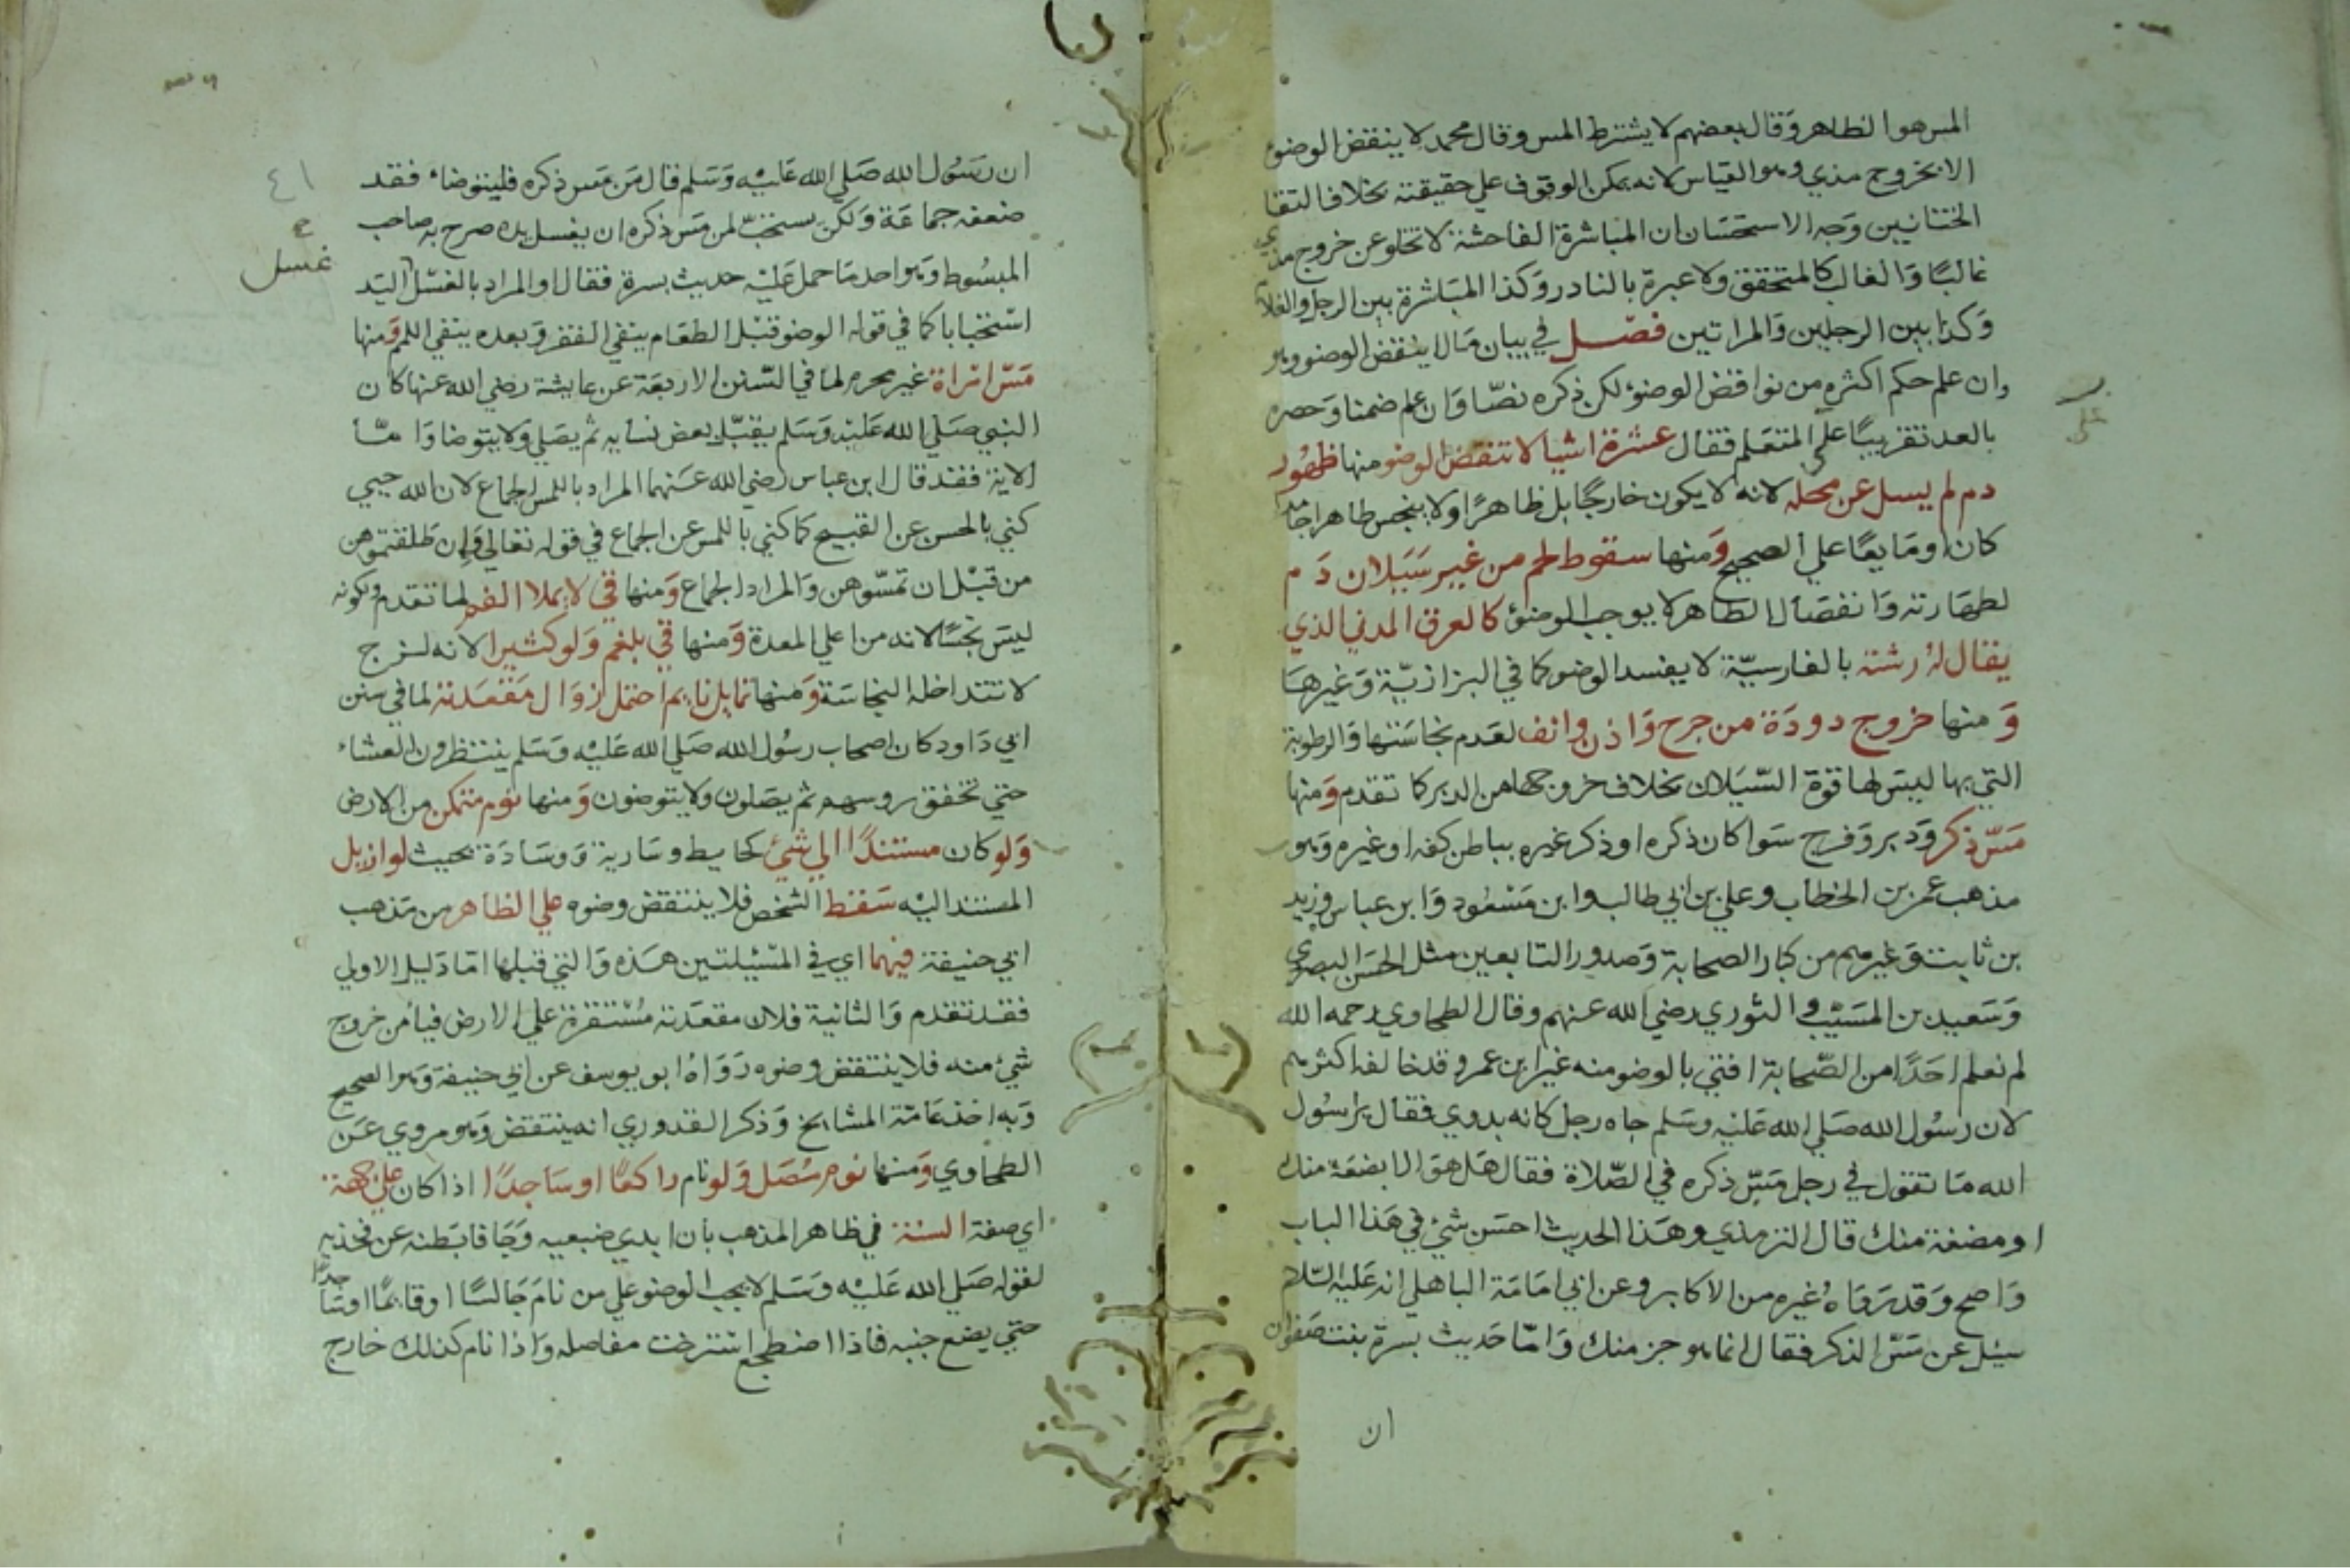 المس هو الظاهر وقال بعضهم لا يشترط المس وقال محمد لا ينقض الوضوء
الا بخروج مذي وهو القياس لانه يمكن الوقوف علي حقيقته بخلاف التقا
الختانيين وَجه الاستحسَان ان المباشرة الفاحشة لا تخلو عن خروج مذي
غالبًا وَالغالب كالمتحقق ولا عبرة بالنادر وَكذا المبَاشرة بين الرجل والغلام
وَكذا بين الرجلين وَالمراتين فصّل في بيان مَا لا ينقض الوضوء وهو
وان علم حكم اكثره من نواقض الوضوء لكن ذكره نصّا وَان علم ضمنا وَحصره
علي
بالعد تقريبًا علي المتعلم فقال عشرة اشيا لا تنقض الوضو منها ظهُور
دم لم يسل عن محله لانه لا يكون خارجًا بل ظاهرًا ولا ينجس طاهرا جامدا
كان او مَايعًا علي الصحيح وَمنها سقوط لحم من غير سَيَلان دَم
لطهَارته وَانفصَال الطاهر لا يوجب الوضوء كالعرق المدني الذي
يقال لهُ رشته بالفارسيّة لا يفسد الوضو كما في البزازيّة وَغيرهَا
وَمنها خروج دودَة من جرح وَاذن وانف لعَدم نجاسَتها وَالرطوبة
التي بها ليسَ لها قوة السّيَلان بخلاف خروجها من الدبر كما تقدم وَمنها
مَسّ ذكر وَدبر وَفرج سَوا كان ذكره او ذكر غيره بباطن كفه او غيره وَهو
مذهب عمر بن الخطاب وعلي بن ابي طالب وابن مَسْعُود وَابن عباس وزيد
بن ثابت وَغيرهم من كبار الصحابة وَصدور التابعين مثل الحسَن البصري
وَسَعيد بن المسَيّب والثوري رضي الله عنهم وقال الطحاوي رحمه الله
لم نعلم احَدًا من الصّحابة افتي بالوضو منه غير ابن عمر وقد خالفه اكثرهم
لان رسُول الله صَلي الله عَليْه وسَلم جاه رجل كانه بدوي فقال يارسُول
الله مَا تقول في رجل مَسّ ذكره في الصّلاة فقال هَل هوَ الا بضعَة منك
او مضغة منك قال الترمذي وهَذا الحديث احسَن شيْ في هَذا الباب
وَاصح وَقد رَوَاهُ غيره من الاكابر وعن ابي امَامَة الباهلي انه عَليْه السّلام
سيُل عن مَسّ الذكر فقال انما هو جز منك وَامّا حَديث بسرة بنت صَفوان
ان
٤١
ان رَسُول الله صَلي الله عَليْه وَسَلم قال مَن مَس ذكره فليتوضاء فقد
ضعفه جماعَة وَلكن يستحَبّ لمن مَس ذكره ان يغسل يده صرح به صاحب
غسل
المبسُوط وَهو احد مَا حمل عَليْه حديث بسرة فقال او المراد بالغسْل اليَد
استحبابا كما في قوله الوضو قبْل الطعَام ينفي الفقر وَبعده ينفي اللمم وَمنها
مَسّ امراة غير محرم لما في السّنن الاربعَة عن عايشة رضي الله عنها كان
النبي صَلي الله عَليْه وَسَلم يقبّل بعض نسايه ثم يصَلي ولا يتوضا وَامّا
الاية فقد قال ابن عباس رضي الله عَنهما المراد باللمس الجماع لان الله حيي
كني بالحسن عن القبيح كما كني باللمس عن الجماع في قوله تعالي وَإن طلقتموهن
من قبْل ان تمسّوهن وَالمراد الجماع وَمنها قي لا يملا الفم لما تقدم وَلكونه
ليسَ نجسًا لانه من اعلي المعدة وَمنها قي بلغم وَلو كثيرا لانه لزج
لا تتداخله النجاسَة وَمنها تمايل نايم احتمل زوَال مَقعَدته لما في سنن
ابي دَاود كان اصحاب رسُول الله صَلي الله عَليْه وَسَلم ينتظرون العشاء
حتي تخفق روسهم ثم يصَلون ولا يتوضون وَمنها نوم متمكن من الارض
وَلو كان مستندًا الي شيْ كحايط وسَارية وَوسَادَة بحيث لو ازيل
المستند اليْه سَقط الشخص فلا ينتقض وضوه علي الظاهر من مَذهب
ابي حنيفة فيهما اي في المسْيلتين هَذه وَالتي قبلها امّا دَليل الاولي
فقد تقدم وَالثانية فلان مقعَدته مُسْتقرة علي الارض فيامن خروج
شيْ منه فلا ينتقض وضوه رَوَاهُ ابو يوسف عن ابي حنيفة وَهو الصحيح
وَبه اخذ عَامّة المشايخ وَذكر القدوري انه ينتقض وَهو مروي عَن
الطحاوي وَمنها نوم مُصَل وَلو نام راكعًا او سَاجدًا اذا كان علي جهة
اي صفة السُنة في ظاهر المذهب بأن ابدي ضبعيه وَجَافا بَطنه عن فخذيه
لقوله صَلي الله عَليْه وسَلم لا يجب الوضو علي من نامَ جَالسًا او قايمًا او سَاجدًا
حتي يضع جنبه فاذا اضطجع استرخت مفاصله وَاذا نام كذلك خارج